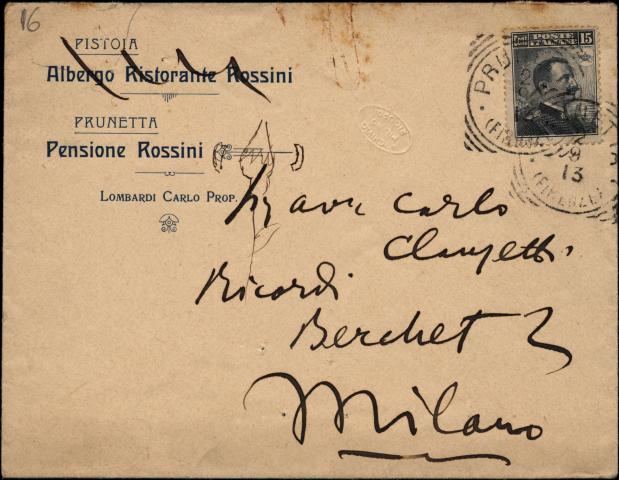 16
PISTOIA
Albergo Ristorante Rossini
PRUNETTA
Pensione Rossini
LOMBARDI CARLO PROP.
POSTE
ITALIANE
15
PRU
(FIRENZE)
13
(FIRENZE)
Carlo
Clausetti
Ricordi
Berchet 2
Milano